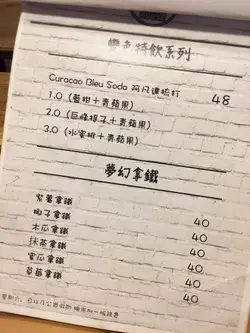 變色特飲系列
Curacao Bleu Soda 阿凡達梳打 48
1.0 (藍柑+青蘋果)
2.0 (巨峰提子+青蘋果)
3.0 (水蜜桃+青蘋果)
夢幻拿鐵
紫薯拿鐵 40
椰子拿鐵 40
木瓜拿鐵 40
抹茶拿鐵 40
蜜瓜拿鐵 40
草莓拿鐵 40
星期六、日以及公眾假期